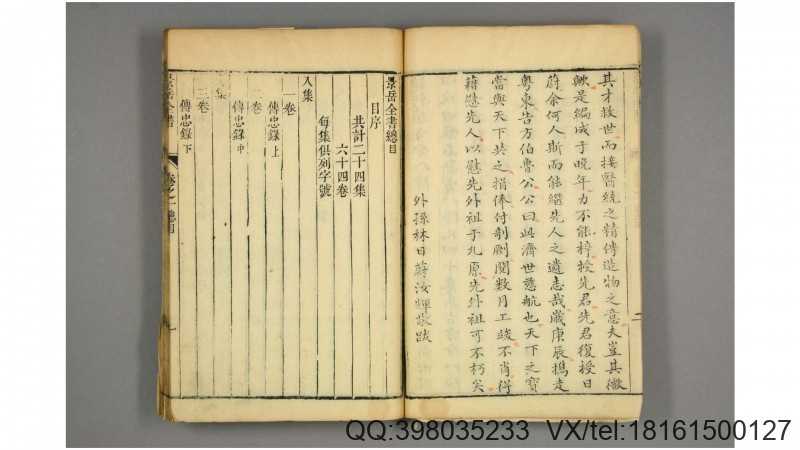 其才救世而接醫統之精傳造物之意夫豈其微
歟是編成于晚年力不能梓授先君先君復授日
蔚余何人斯而能繼先人之遺志哉歲庚辰攜走
粤東告方伯魯公公曰此濟世慈航也天下之寶
當與天下共之捐俸付剞劂閱數月工竣不肖得
藉慰先人以慰先外祖于九原先外祖可不朽矣
外孫林日蔚汝暉敬跋
二
景岳全書總目
目序
共計二十四集
六十四卷
每集俱列字號
入集
一卷
傳忠錄 上
二卷
傳忠錄 中
集
三卷
傳忠錄 下
景岳全書
卷之一總目
QQ:398035233 VX/tel:18161500127